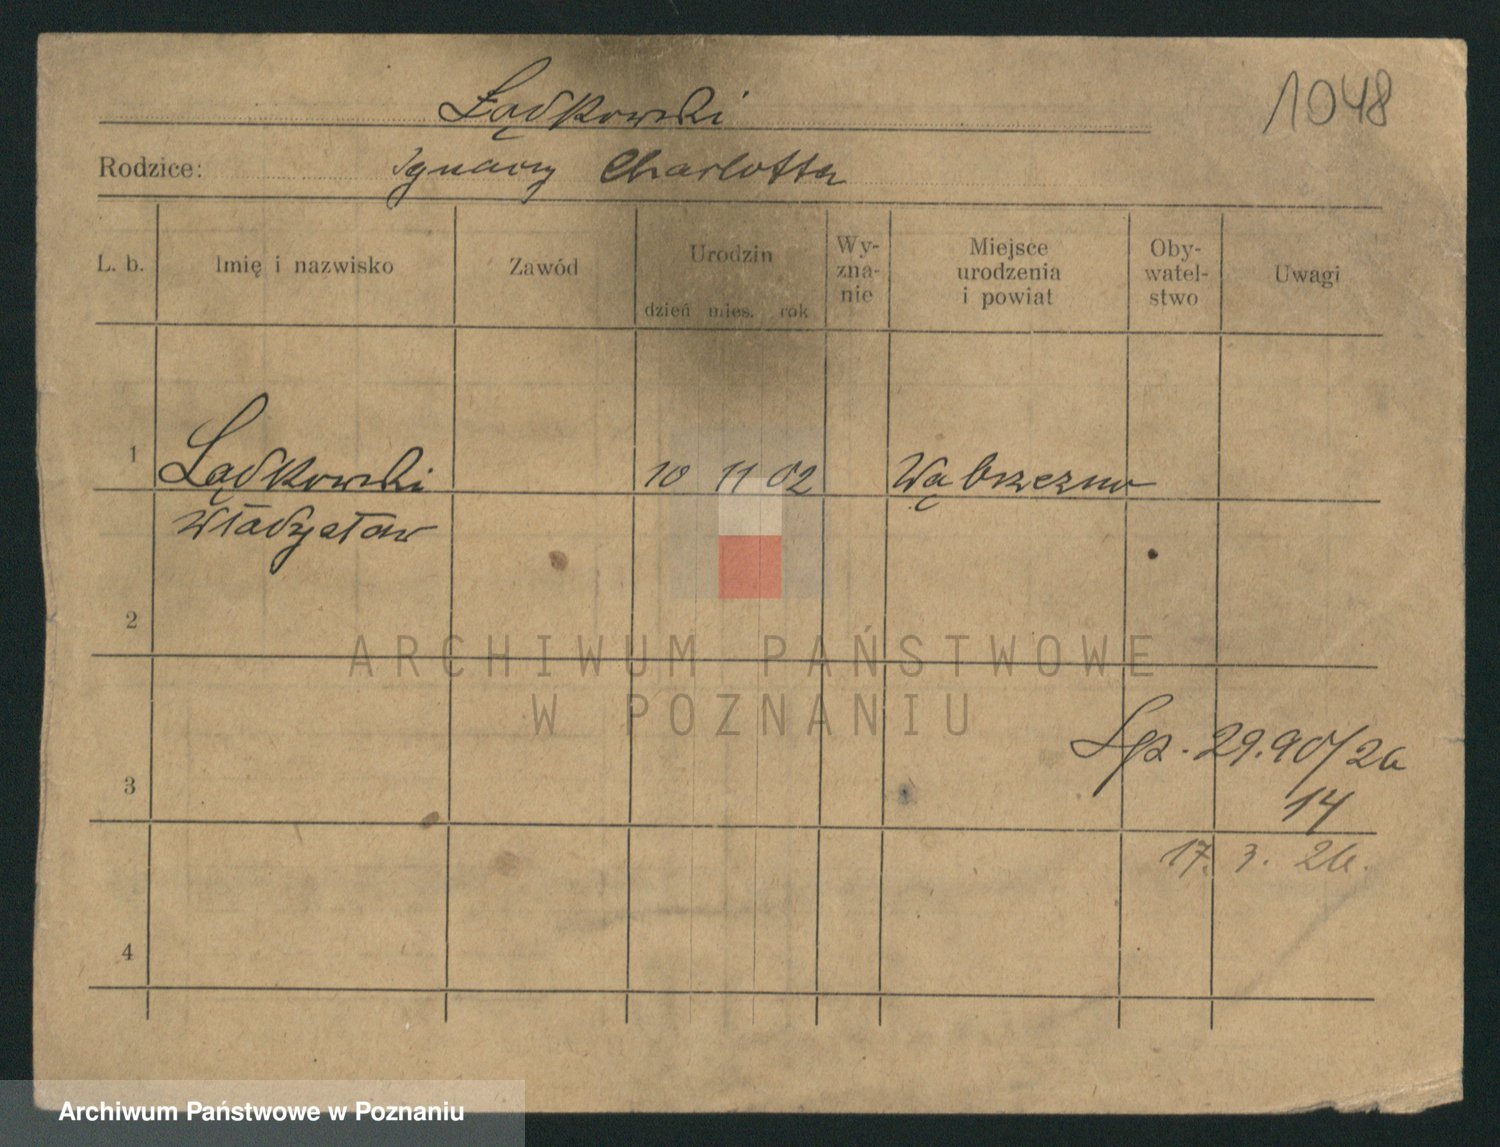 Łądkowski
1048
Rodzice: Ignacy Charlotta
L. b. Imię i nazwisko Zawód Urodzin dzień mies. rok Wy-zna-nie Miejsce urodzenia i powiat Oby-watel-stwo Uwagi
1 Łądkowski 10 11 02 Wąbrzezno
Władysław
2
ARCHIWUM PAŃSTWOWE
W POZNANIU
3
29.90/26
14
17. 3. 26.
4
Archiwum Państwowe w Poznaniu